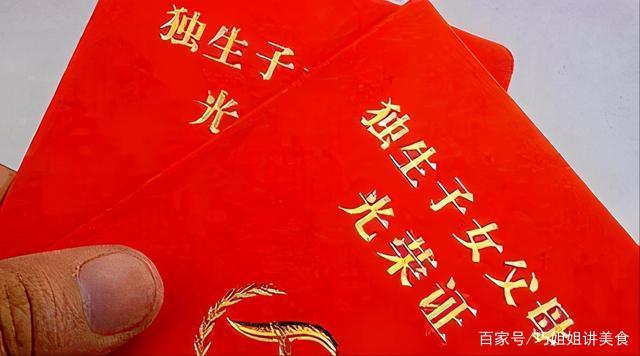 独生子
光
独生子女父母
光荣证
百家号/巧姐姐讲美食